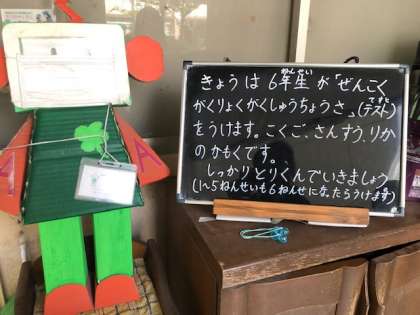 きょうは6年生が「ぜんこく
がくりょくがくしゅうちょうさ」(テスト)
をうけます。こくご、さんすう、りか
のかもくです。
しっかりとりくんでいきましょう
(1〜5ねんせいも6ねんせになったらうけます)
A